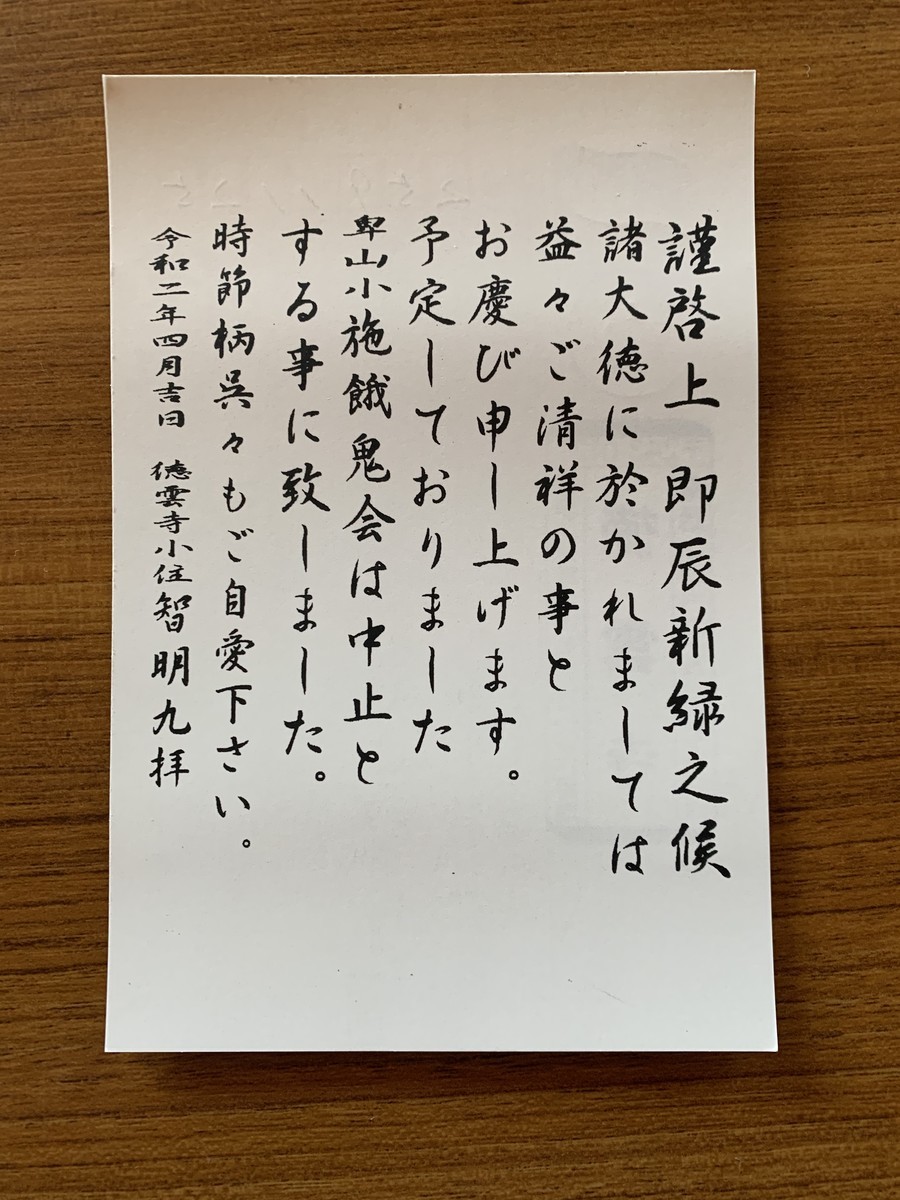 謹啓上 即辰新緑之候
諸大徳に於かれましては
益々ご清祥の事と
お慶び申し上げます。
予定しておりました
卑山小施餓鬼会は中止と
する事に致しました。
時節柄呉々もご自愛下さい。
令和二年四月吉日 徳雲寺小住智明九拝